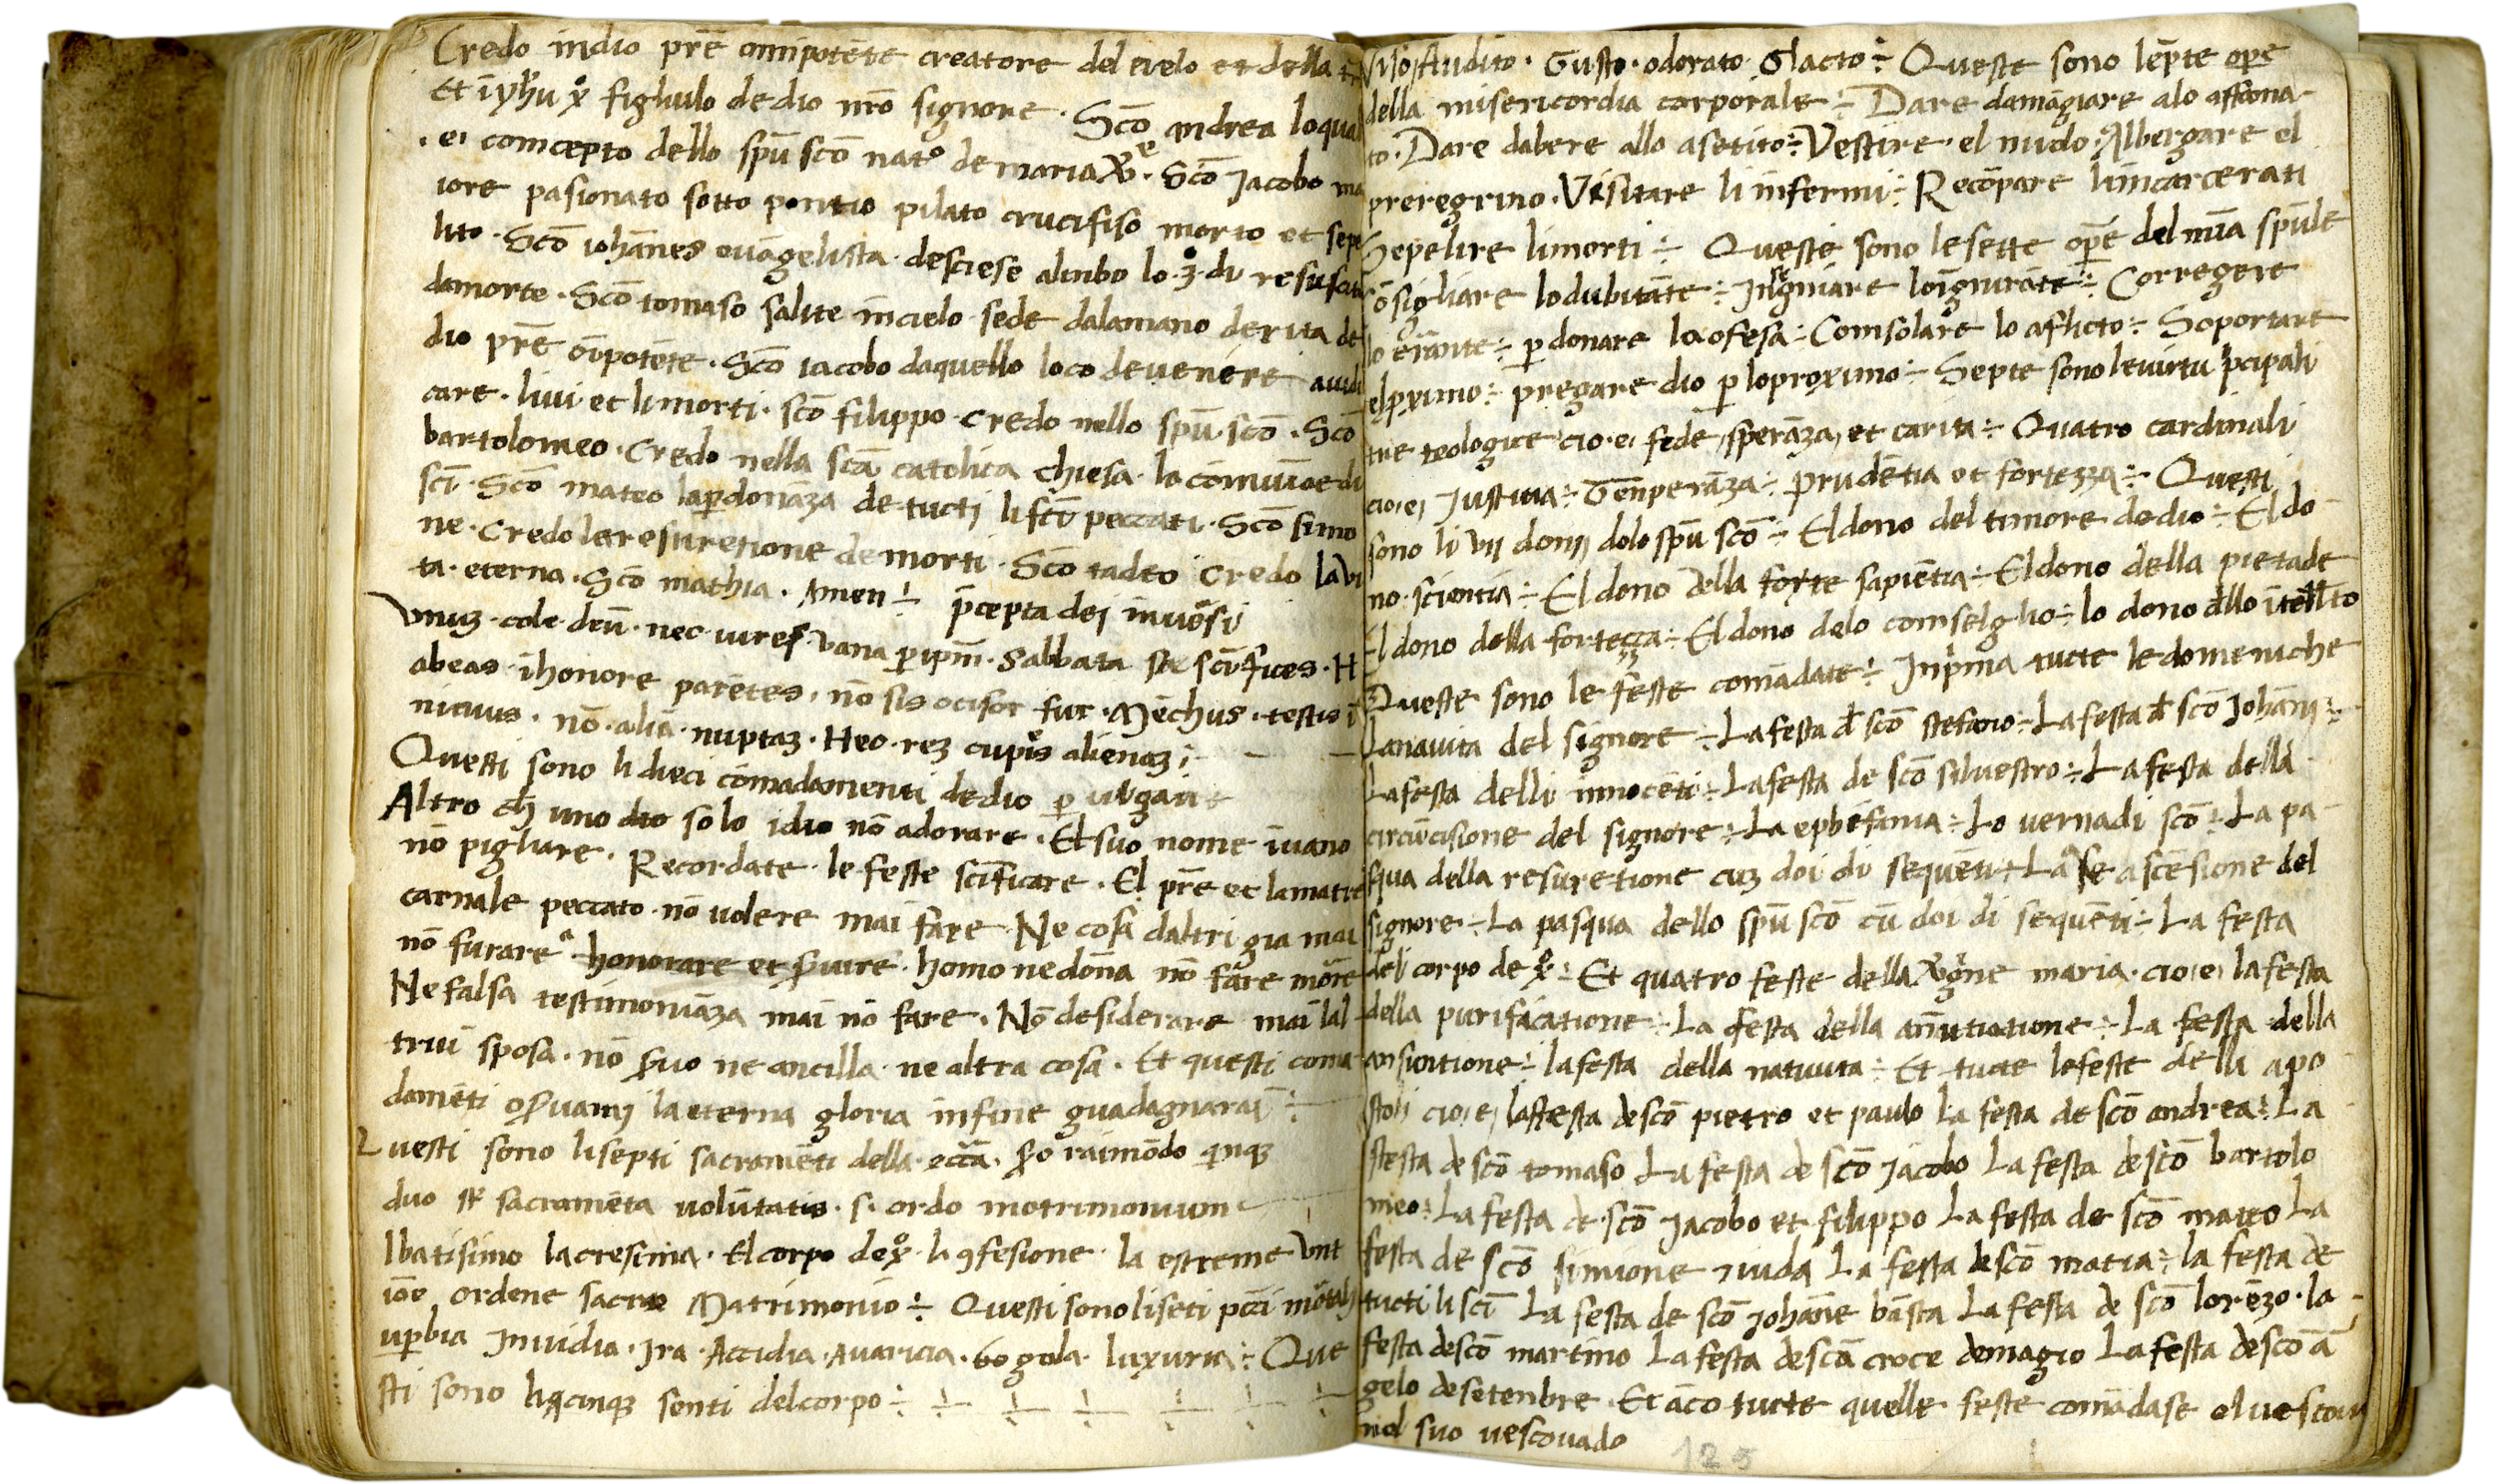 Credo indio prē omīpotēte creatore del cielo et della
Et ī yhū xº figliulo de dio nrō signore · Scō andrea loqual
· e · comcepto dello spū scō natº de maria v̄e · Scō Jacobo ma
iore pasionato sotto pontio pilato crucifiso morto et sepe
lito · Scō iohānes evāgelista · desciese alinbo lo · 3º · di resuscito
damorte · Scō tomaso salite incielo sede dalamano derita de
dio prē oīpotēte · Scō iacobo daquello loco devenire aiudi
care · livi et limorti · scō filippo · Credo nello spū scō · Scō
bartolomeo · Credo nella scā catolica chiesa · la comuniōe di
scī · Scō mateo lap̱donāza de tucti li peccati · Scō simo
ne · Credo la resuretione de morti · Scō tadeo credo la vi
ta · eterna · Scō mathia · Amen ÷ p̄cepta dei in v̄si
Vnuȝ · cole deū · nec iures vana p̱ ip̄m · Sabbata scīfices · H
abeas · ī honore parētes · nō sis ocisor fur · Mechus · testis ī
nicuus · nō · aliā · nuptaȝ · Nec · reȝ cupis alienaȝ ;
Questi sono li dieci comadamenti de dio p̱ vlgari
Altro ch̄ uno solo idio nō adorare · El suo nome īvano
nō pigliare · Recordate · le feste scīficare · El prē et lamatre
carnale peccato nō volere mai fare Ne cosa daltri gia mai
nō furare honorare et s̱vire · homo ne dōna nō fare
Ne falsa testimoniāza mai nō fare · Nō desiderare mai lal
trui sposa · nō s̱vo ne ancilla · ne altra cosa · Et questi coma
damēti os̱vami la eterna gloria infine guadagnarai ÷
Questi sono lisepti sacramēti della eccā · raimōdo
duo sacramēta volūtatis · s · ordo matrimonium
lbatisimo lacresima · El corpo de xº · la 9fesione · la estreme vnt
iōe ordene sacro Matrimonio ÷ Questi sono liseti pcci mōtali
up̱bia Invidia · Ira · Accidia · Avaricia · gola · luxuria ÷ Que
sti sono li cinque senti del corpo ÷
Viso Audito · Gusto · odorato · Tacto ÷ Queste sono lep̄te ope
della misericordia corporale ÷ Dare damāgiare alo affama
to · Dare dabere allo asetito ÷ Vestire · el nudo · Albergare el
preregrino · Visitare li infermi ÷ Recōpare lincarcerati
Sepelire limorti ÷ Queste sono lesette opē del spūle
Cōsigliare lodubitāte ÷ Insegniare loīgnurāte ÷ Corregere
lo erante ÷ p̱donare la ofesa ÷ Comsolare lo aflicto ÷ Soportare
elproximo ÷ pregare dio p̱ loproximo ÷ Septe sono levirtu p̄cipali
tre teologice cio · e · fede , sperāza , et carita ÷ Quatro cardinali
cio · e · Justitia ÷ Tenperāza ÷ prudētia et fortezza ÷ Questi
sono li vij donij dolo spū scō ÷ El dono del timore dedio ÷ El do
no · scientia ÷ El dono della forte sapiētia ÷ El dono della pietade
El dono della fortezza ÷ El dono delo comselglio ÷ lo dono dello ītelletto
Queste sono le feste comādate ÷ Inp̄ma tucte le domeniche
Lanavita del signore ÷ La festa d̄ scō stefano ÷ La festa d̄ scō Johāni ÷
La festa delli innocēti ÷ La festa de scō silvestro ÷ La festa della
circūcisione del signore ÷ La ephifania ÷ Lo vernadi scō ÷ La pa
squa della resuretione cuȝ doi di sequēti ÷ La ascēsione del
signore ÷ La pasqua dello spū scō cū doi di sequēti ÷ La festa
del corpo de xº ÷ Et quatro feste della v̄gine maria · cio · e · la festa
della purificatione ÷ La festa della anūtiatione ÷ La festa della
ansuntione ÷ la festa della natiuita ÷ Et tucte lefeste delli apo
stoli cio · e · lafesta de scō pietro et paulo La festa de scō andrea ÷ La
festa de scō tomaso La festa de scō Jacobo La festa de scō bartolo
meo ÷ La festa de scō Jacobo et filippo La festa de scō mateo La
festa de scō simione iuda La festa de scō matia ÷ la festa de
tucti li scī La festa de scō Johāne bāsta La festa de scō lorēzo · la
festa de scō martino La festa de scā croce demagio La festa de scō ā
gelo de setenbre · Et āco tucte quelle feste comādase el vescovo
nel suo vescovado
125